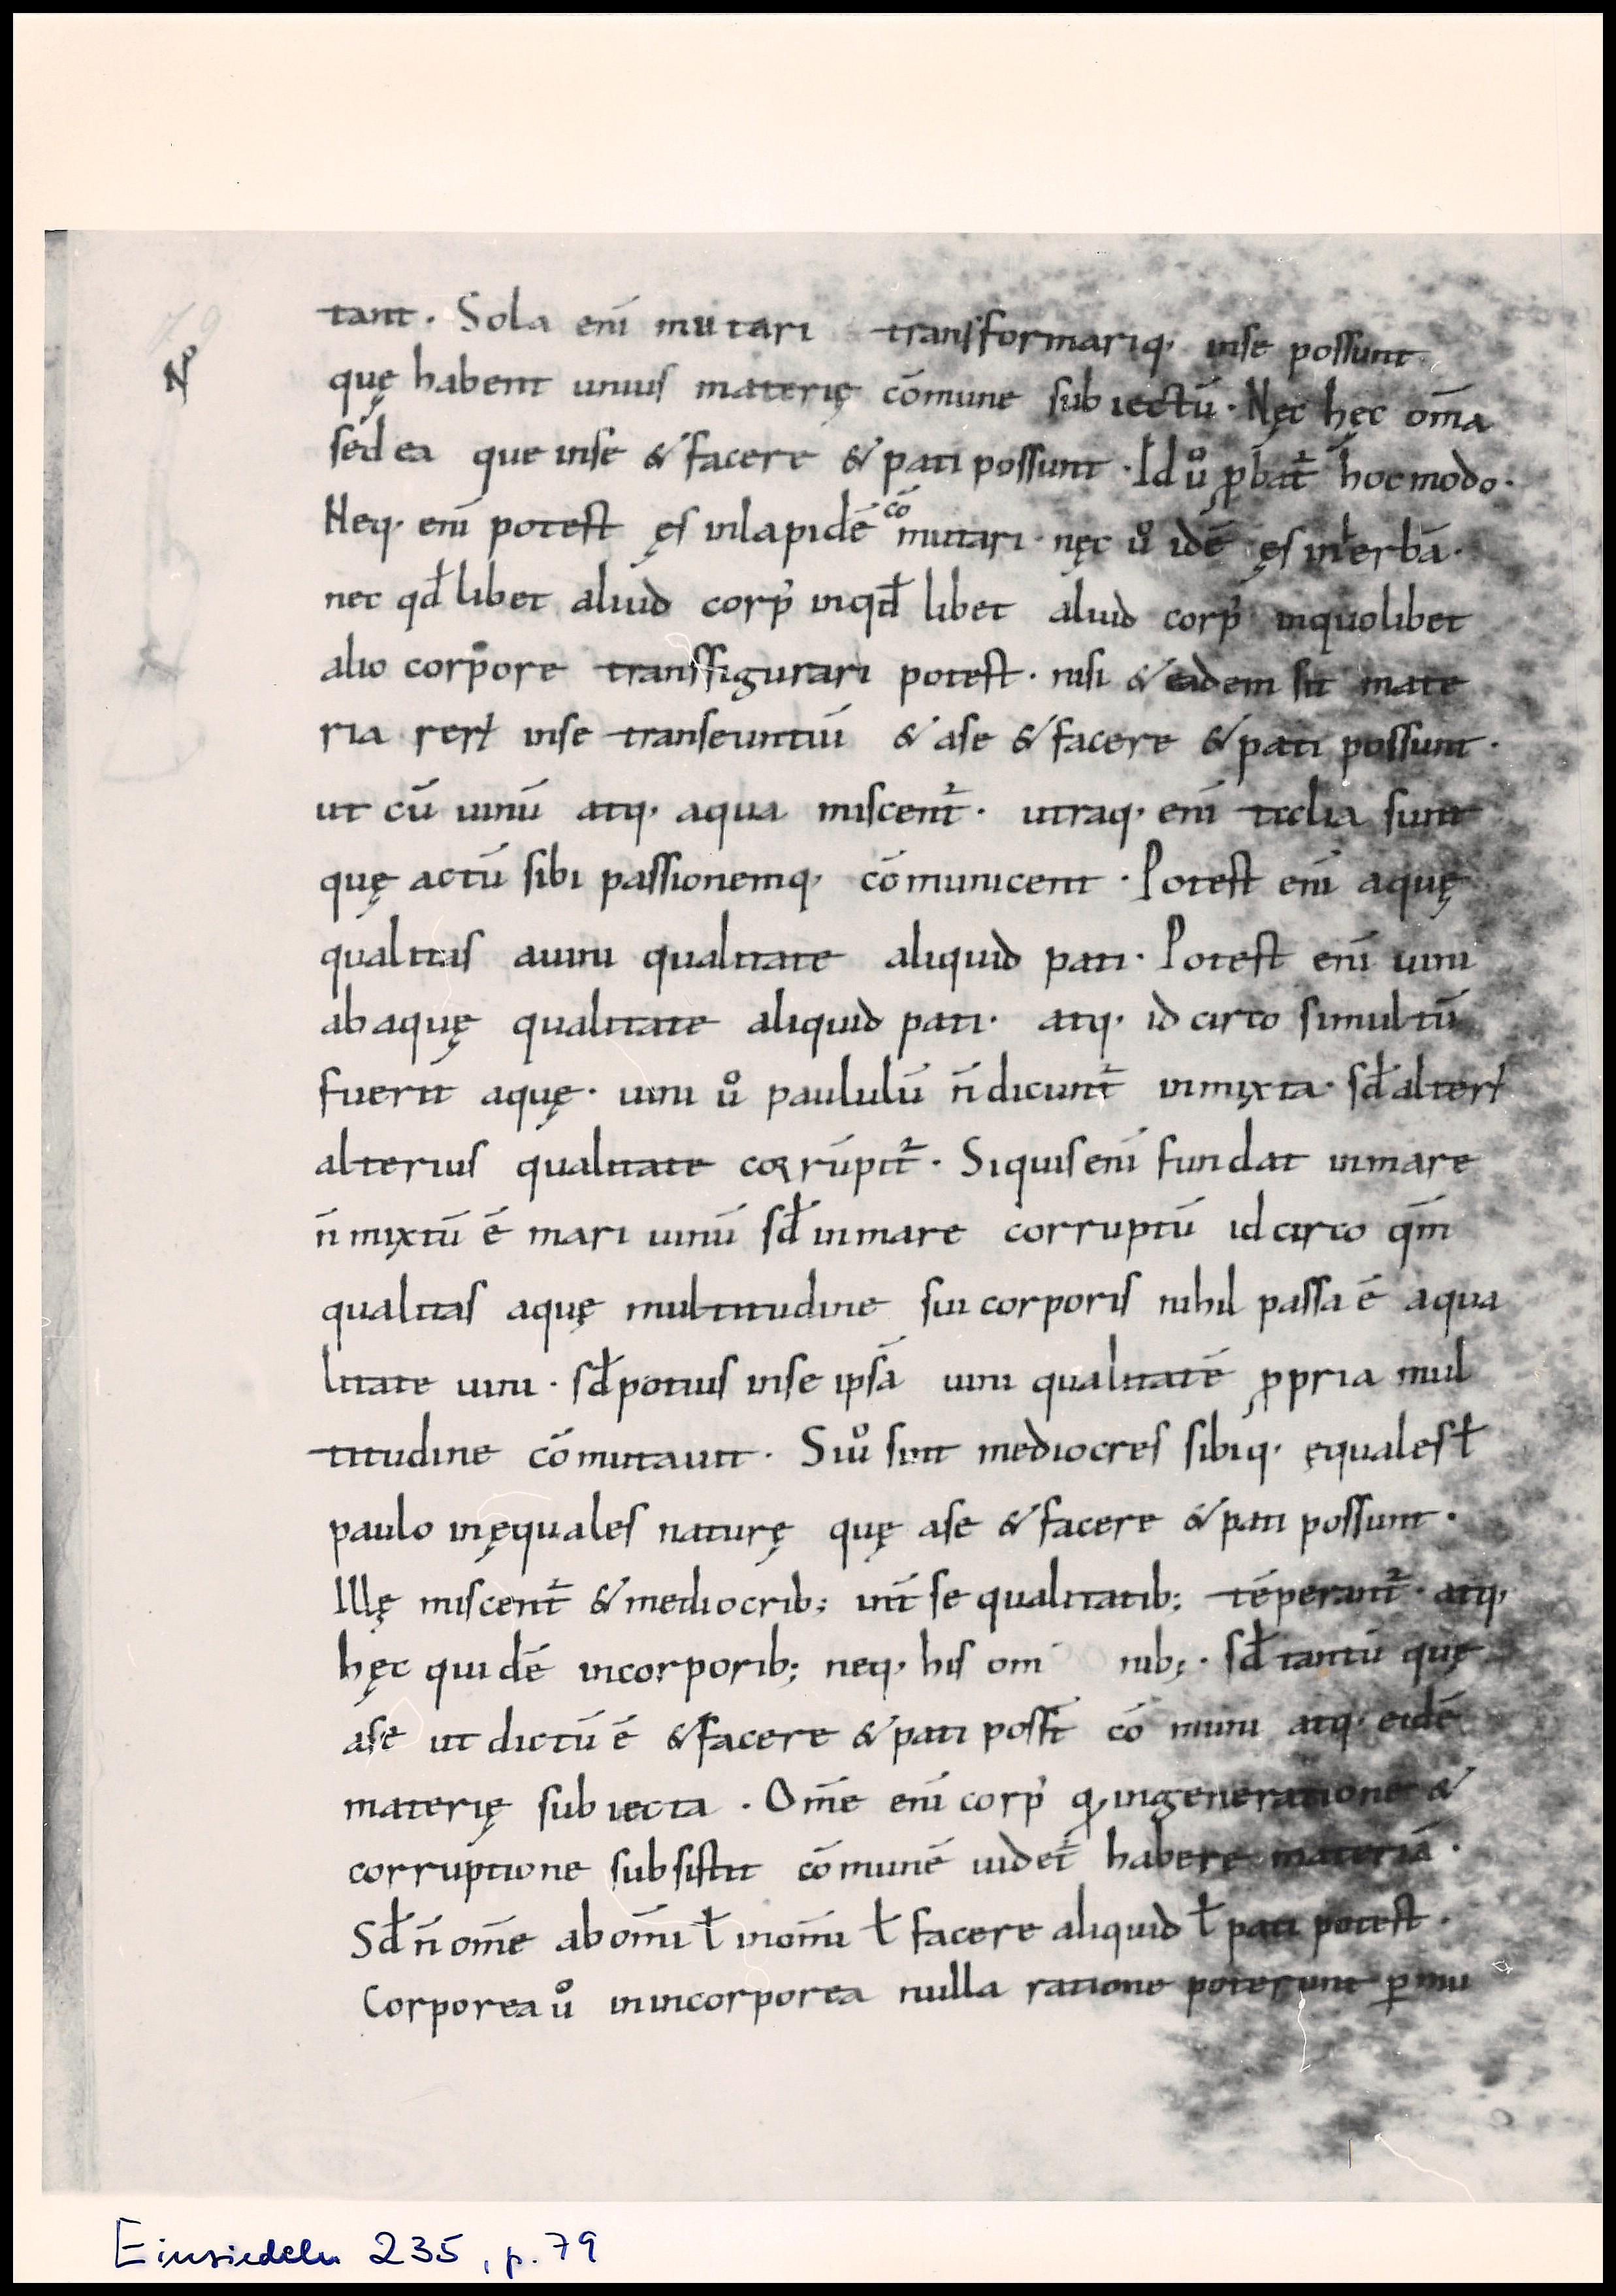 79
N̊
tant · Sola enī mutari transformariq· inse possunt
quę habent unius materię cōmune subiectū · Nęc hęc om̄a
sed ea que inse & facere & pati possunt · Id ů ꝓbat̄ hocmodo ·
Neq· enī potest ęs inlapidē cōmutari · nęc ů idē ęs inherbā ·
nec qđ libet aliud corp' inqđ libet aliud corp' inquolibet
alio corpore transfigurari potest · nisi & eadem sit mate
ria rerꝝ inse transeuntiū & ase & facere & pati possunt ·
ut cū uinū atq· aqua miscent̄ · utraq· enī talia sunt
quę actū sibi passionemq· cōmunicent · Potest enī aquę
qualitas auini qualitate aliquid pati · Potest enī uini
abaquę qualitate aliquid pati · atq· idcirco simultū
fuerit aquę · uini ů paululū n̄ dicunt̄ inmixta · sđ alterꝝ
alterius qualitate corrūpit̄ · Siquis enī fundat inmare
n̄ mixtū ē mari uinū sđ inmare corruptū idcirco qm̄
qualitas aquę multitudine sui corporis nihil passa ē aqua
litate uini · sđ potius inse ipsā uini qualitatē ꝓpria mul
titudine cōmutauit · Siů sint mediocres sibiq· ęquales ł
paulo inęquales naturę quę ase & facere & pati possunt ·
Illę miscent̄ & mediocrib; int̄ se qualitatib; tēperant̄ · atq·
hęc quidē incorporib; neq· his omnib; · sđ tantū quę
ase ut dictū ē & facere & pati poss̄t cōmuni atq· eidē
materię subiecta · Om̄e enī corp' ꝙ ingeneratione &
corruptione subsistit cōmunē uidet̄ habere materiā ·
Sđ n̄ om̄e abom̄i ł inom̄i ł facere aliquid ł pati potest ·
Corporea ů inincorporea nulla ratione poterunt ꝑmu
Einsiedeln 235, p. 79